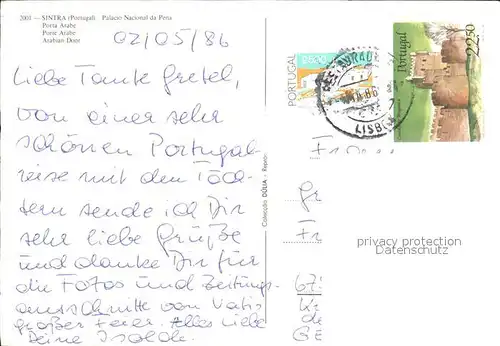 2001 - SINTRA (Portugal) Palácio Nacional da Pena
Porta Árabe
Porte Arabe
Arabian Door
02/05/86
Liebe Tante Gretel,
von einer sehr
schönen Portugal-
reise mit den Töch-
tern sende ich Dir
sehr liebe Grüße
und danke Dir für
die Fotos und Zeitungs-
ausschnitte von Vatis
großer Feier. Alles Liebe
Deine Isolde.
Colecção DÚLIA
PORTUGAL
Portugal
22.50
LISBOA
Fr
67
privacy protection
Datenschutz